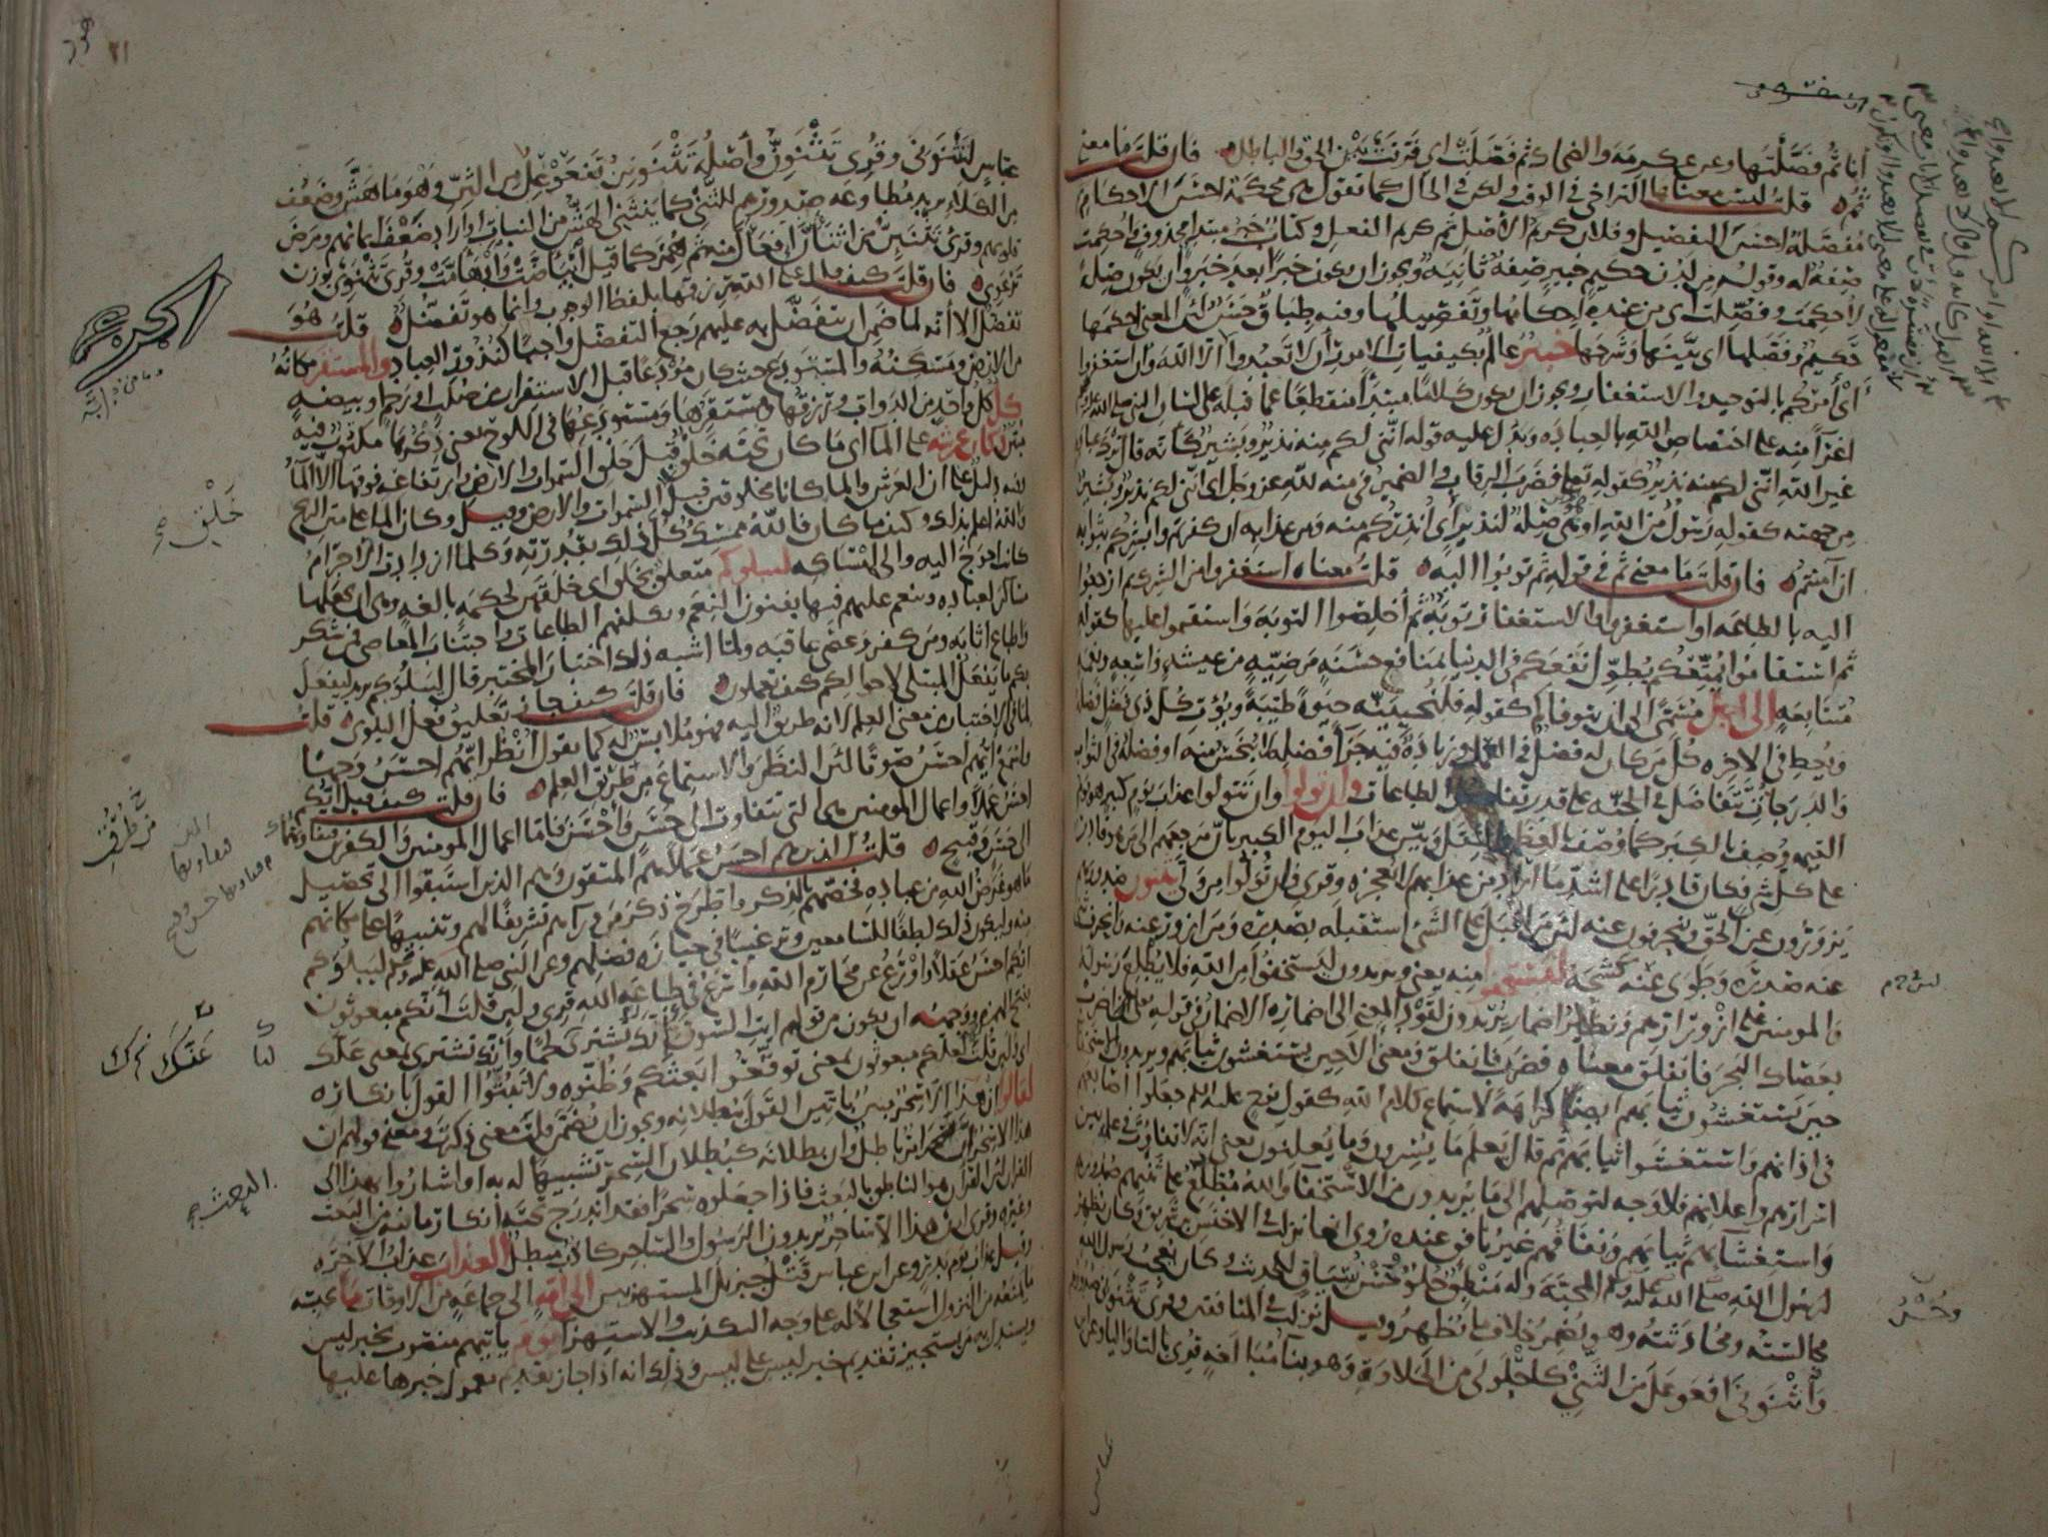 أنا ثم فصّلتُها وعن عكرمة والضحاك ثم فَصَلَتْ اى فرقت بين الحق والباطل فان قلت ما معنى
ثم قلت ليس معناها التراخى فى الوقت ولكن فى الحال كما تقول هى محكمة احسن الاحكام
مفصّلة احسن التفصيل وفلان كريم الاصل ثم كريم الفعل وكتاب خبر مبتدإ محذوف واحكمت
صفة له وقوله من لدن حكيم خبير صفة ثانية ويجوز ان يكون خبرا بعد خبر وان يكون صلة
لأحكمت وفصّلت اى من عنده احكامها وتفصيلها وفيه طباق حسن لأن المعنى احكمها
حكيم وفصّلها اى بيّنها وشرحها خبير عالم بكيفيات الامور أن لا تعبدوا الا الله وان استغفروا
اى أمركم بالتوحيد والاستغفار ويجوز ان يكون كلاما مبتدأ منقطعا عما قبله على لسان النبى صلى الله عليه
اغرآ منه على اختصاص الله بالعبادة ويدل عليه قوله انّنى لكم منه نذير وبشير كأنه قال ترك عبادة
غير الله انّنى لكم منه نذير كقوله تعالى فضرب الرقاب والضمير فى منه لله عز وجل اى انّنى لكم نذير وبشير
من جهته كقوله رسول من الله او هى صلة لنذير اى انذركم منه ومن عذابه ان كفرتم وابشركم بثوابه
ان آمنتم فان قلت ما معنى ثم فى قوله ثم توبوا اليه قلت معناه استغفروا من الشرك ثم ارجعوا
اليه بالطاعة او استغفروا والاستغفار توبة ثم أخلصوا التوبة واستقيموا عليها كقوله
ثم استقاموا يمتّعكم يطوّل نفعكم فى الدنيا بمنافع حسنة مرضيّة من عيشة واسعة ونعمة
متتابعة الى اجل مسمّى الى ان يتوفاكم كقوله فلنحيينّه حيوة طيّبة ويؤت كل ذى فضل فضله
ويعط فى الاخره كل من كان له فضل فى العمل وزيادة فيه جزآ فضله لا يبخس منه او فضله فى الثواب
والدرجات تتفاضل فى الجنّة على قدر تفاضل الطاعات وان تولوا وان تتولوا عذاب يوم كبير هو يوم
القيمة وصف بالكبر كما وصف بالعظم والثقل وبيّن عذاب اليوم الكبير بأن مرجعهم الى من هو قادر
على كل شئ فكان قادرا على اشد ما اراد من عذابهم لا يعجزه وقرئ وان تُوَلّوا من ولّى يثنون صدورهم
يزورّون عن الحقّ وينحرفون عنه لأن من اقبل على الشئ استقبله بصدره ومن ازورّ عنه وانحرف
عنه صدره وطوى عنه كشحه ليستخفوا منه يعنى ويريدون ليستخفوا من الله فلا يطلع رسوله
والمؤمنين على ازورارهم ونظير اضمار يريدون لقَوْد المعنى الى اضماره الاضمار فى قوله تعالى اضرب
بعصاك البحر فانفلق معناه فضرب فانفلق ومعنى الا حين يستغشون ثيابهم ويريدون الاستخفآ
حين يستغشون ثيابهم ايضا كراهة لاستماع كلام الله كقول نوح عليه السلم جعلوا اصابعهم
فى اذانهم واستغشوا ثيابهم ثم قال يعلم ما يسرون وما يعلنون يعنى انه لا تفاوت فى علمه بين
اسرارهم واعلانهم فلا وجه لتوصّلهم الى ما يريدون من الاستخفآ والله مطّلع على ثنيهم صدورهم
واستغشآئهم ثيابهم ونفاقهم غير نافق عنده روى انها نزلت فى الاخنس بن شريق وكان يظهر
لرسول الله صلى الله عليه وسلم المحبّة وله منطق حلو وحسن سياق للحديث وكان يعجب رسول الله
مجالسته ومحادثته وهو يضمر خلاف ما يظهر وقيل نزلت فى المنافقين وقرئ تثنونى صدورهم
واثنونى افعوعل من الثنى كاحلولى من الحلاوة وهو بنآ مبالغة قرئ بالتا واليا وعن ابن
لئلا م
وحُسْن
عباس لتثنونى وقرئ تثنونّ وأصله تثنونن تفعوعل من الثنّ وهو ما هشّ وضعف
من الكلاء يريد مطاوعة صدورهم للثنى كما ينثنى الهش من النبات او اراد ضعف ايمانهم ومرض
قلوبهم وقرئ تثنئنّ من اثنأنّ افعألّ منه ثم همز كما قيل ابيأضت وادهأمت وقرئ تثنوى بوزن
ترعوى فان قلت كيف قيل على الله رزقها بلفظ الوجوب وانما هو تفضّل قلت هو
تفضل الا أنه لما ضمن ان يتفضّل به عليهم رجع التفضل واجبا كنذور العباد والمستقر مكانه
من الارض ومسكنه والمستودع حيث كان مودعا قبل الاستقرار من صلب او رحم او بيضة
كل كل واحد من الدواب ورزقها ومستقرها ومستودعها فى اللوح يعنى ذكرها مكتوب فيه
مبين وكان عرشه على الما اى ما كان تحته خلق قبل خلق السموات والارض وارتفاعه فوقها الا الما
وفيه دليل على ان العرش والما كانا مخلوقين قبل السموات والارض وقيل وكان الما على متن الريح
والله اعلم بذلك وكيف ما كان فالله ممسك كل ذلك بقدرته وكلما ازدادت الاجرام
كانت احوج اليه والى امساكه ليبلوكم متعلق بخلق اى خلقهن لحكمة بالغة وهى ان يجعلها
مساكن لعباده وينعم عليهم فيها بفنون النعم ويكلفهم الطاعات واجتناب المعاصى فمن شكر
واطاع اثابه ومن كفر وعصى عاقبه ولما اشبه ذلك اختبار المختبر قال ليبلوكم يريد ليفعل
بكم ما يفعل المبتلى لاحوالكم كيف تعملون فان قلت كيف جاز تعليق فعل البلوى قلت
لما فى الاختبار من معنى العلم لانه طريق اليه فهو ملابس له كما تقول انظر ايهم احسن وجها
واسمع ايّهم احسن صوتا لأن النظر والاستماع من طرق العلم فان قلت كيف قيل ايّكم
احسن عملا واعمال المومنين هى التى تتفاوت الى حسن وأحسن فاما اعمال المومنين والكفرين فتفاوتها
الى حسن وقبيح قلت الذين هم احسن عملا هم المتقون وهم الذين استبقوا الى تحصيل
ما هو غرض الله من عباده فخصّهم بالذكر واطّرح ذكر من ورآهم تشريفا لهم وتنبيها على مكانهم
منه وليكون ذلك لطفا للسامعين وترغيبا فى حيازة فضلهم وعن النبى صلى الله عليه وسلم ليبلوكم
ايّكم احسن عقلا واورع عن محارم الله واسرع فى طاعة الله قرئ ولئن قلت أنّكم مبعوثون
بفتح الهمزه ووجهه ان يكون من قولهم ايت السوق أنّك تشترى لحما وأنّك تشترى بمعنى علّك
اى ولئن قلت لعلكم مبعوثون بمعنى توقّعوا بعثكم وظنّوه ولا تبتّوا القول بانكاره
لقالوا ان هذا الا سحر مبين باتّين القول ببطلانه ويجوز ان يضمّن قلت معنى ذكرت ومعنى قولهم ان
هذا الا سحر مبين ان السحر امر باطل وان بطلانه كبطلان السحر تشبيها له به او اشاروا بهذا الى
القران لأن القرآن هو الناطق بالبعث فاذا جعلوه سحرا فقد اندرج تحته انكار ما فيه من البعث
وغيره وقرئ ان هذا الا ساحر يريدون الرسول والساحر كاذب مبطل العذاب عذاب الآخرة
وقيل عذاب يوم بدر وعن ابن عباس قتل جبريل المستهزئين الى امّة الى جماعة من الاوقات ما يحبسه
ما يمنعه من النزول استعجالا له على وجه التكذيب والاستهزا ويوم ياتيهم منصوب بخبر ليس
ويستدل به من يستجيز تقديم خبر ليس على ليس وذلك انه اذا جاز تقديم معمول خبرها عليها
خَلْق
مِن طُرُق
علّك
البعث